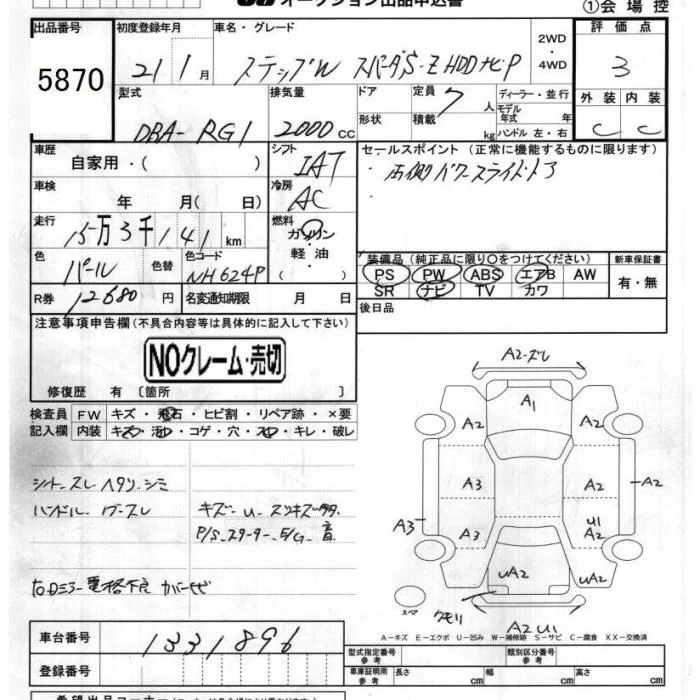 オークション出品申込書 ①会場控
出品番号 初度登録年月 車名・グレード 2WD・4WD 評価点
5870 21 1月 ステップW スパーダS-Z HDDナビP 3
型式 排気量 ドア 定員 7人 ディーラー・並行 外装 内装
DBA-RG1 2000cc 形状 積載 kg モデル年式 年 ハンドル 左・右 C C
車歴 自家用・( ) シフト IAT セールスポイント (正常に機能するものに限ります)
車検 年 月( 日) 冷房 AC ・右側パワースライドドア
走行 15万3千141km 燃料 ガソリン
軽油・( )
色 パール 色替 色コード NH624P
R券 12680円 名変通知期限 月 日
装備品 (純正品に限り○をつけてください) 新車保証書
PS PW ABS エアB AW 有・無
SR ナビ TV カワ
後日品
注意事項申告欄 (不具合内容等は具体的に記入して下さい)
NOクレーム・売切
修復歴 有 〔箇所 〕
検査員 FW キズ・飛石・ヒビ割・リペア跡・×要
記入欄 内装 キズ・汚・コゲ・穴・スレ・キレ・破レ
シート スレ ヘタリ シミ
ハンドル スレ
キズ U スリキズ
P/S スターター E/G 音
右Dミラー電格不良 カバー
A2 ズレ
A1
A2 A2
A3 A2 A2
A3 A3 U1 A2
UA2 UA2
スペア クモリ
A2 U1
A−キズ E−エクボ U−凹み W−補修跡 S−サビ C−腐食 XX−交換済
車台番号 1331896
登録番号
型式指定番号 参考 類別区分番号 参考
車庫証明用 参考 長さ cm 幅 cm 高さ cm